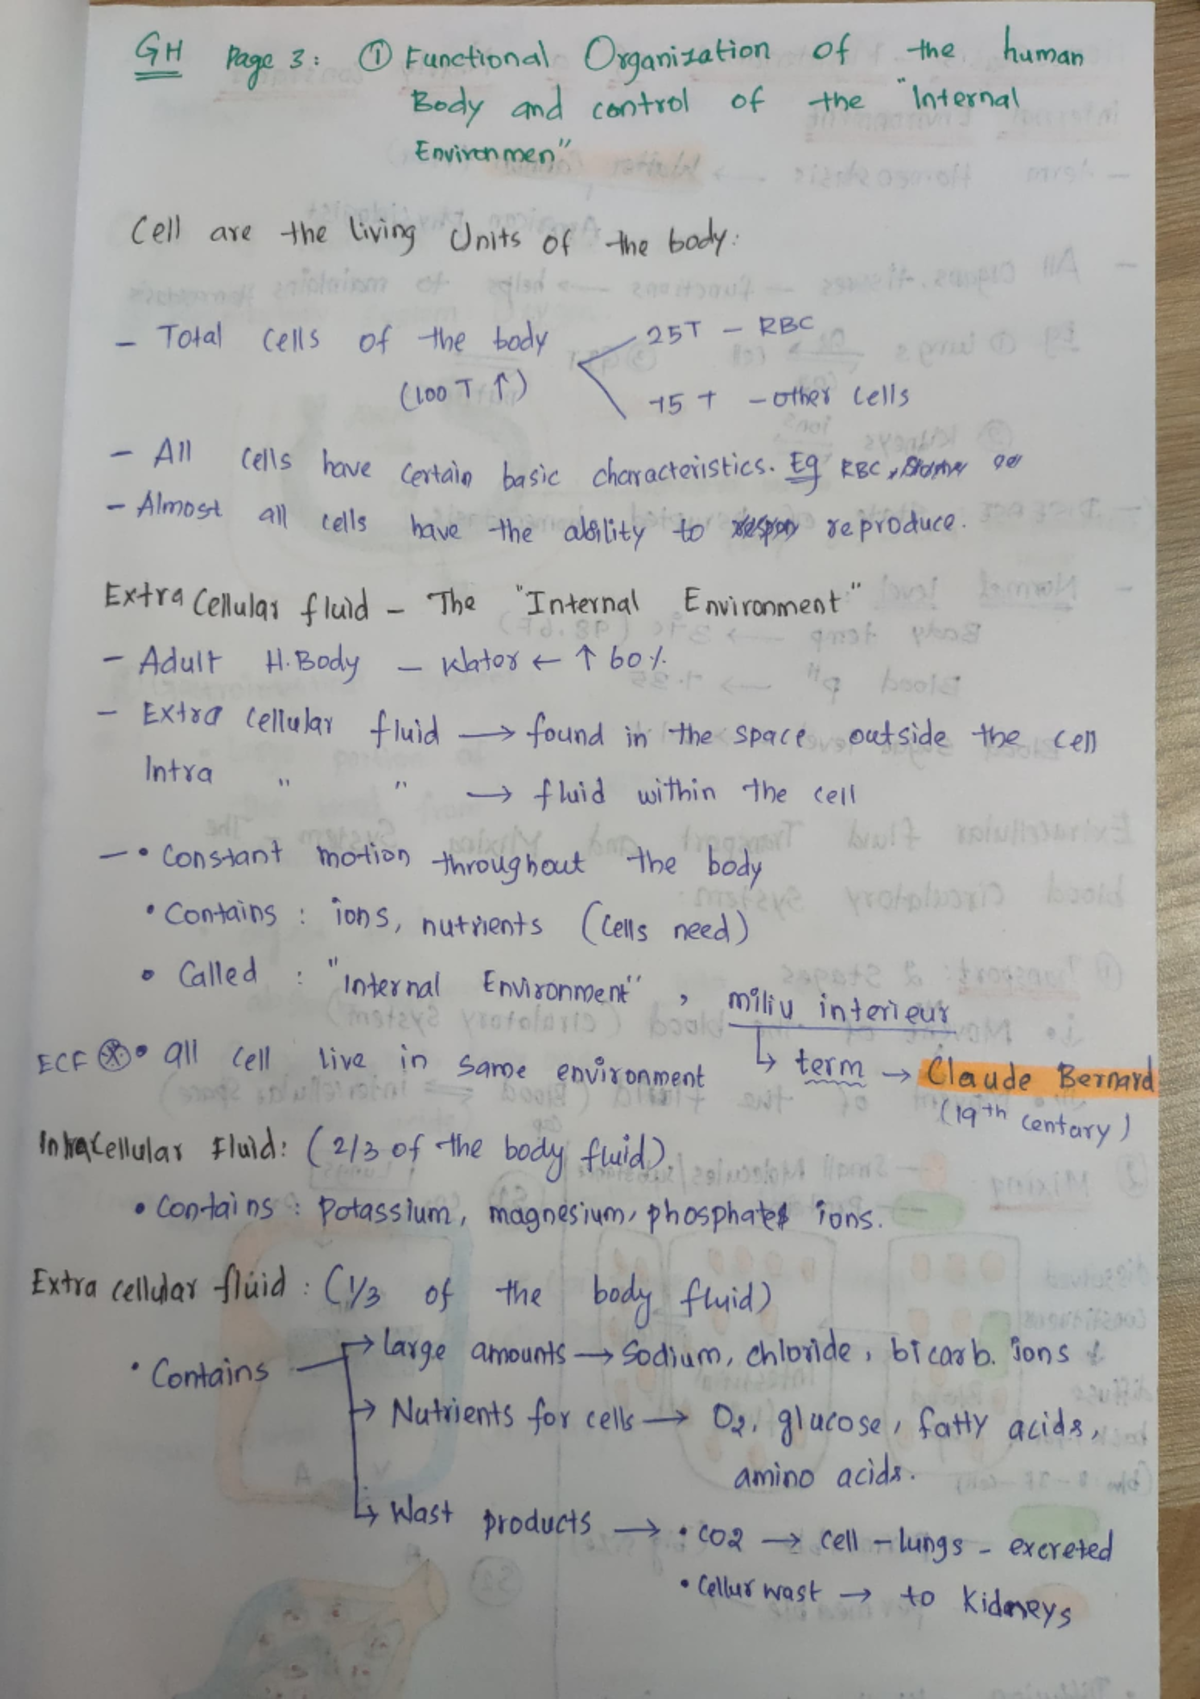 GH Page 3: ① Functional Organization of the human
Body and control of the "Internal
Environmen"
Cell are the living Units of the body:
- Total cells of the body
(100 T ↑)
25T - RBC
75 T - other cells
- All cells have certain basic characteristics. Eg RBC,
- Almost all cells have the ability to reproduce.
Extra Cellular fluid - The "Internal Environment"
- Adult H.Body - Water ← ↑ 60%
- Extra cellular fluid → found in the space outside the cell
Intra " " → fluid within the cell
- • Constant motion throughout the body
• Contains : ions, nutrients (cells need)
• Called : "Internal Environment", miliu interieur
↳ term → Claude Bernard
(19th centary)
ECF ⊛ • all cell live in same environment
Intracellular Fluid: (2/3 of the body fluid)
• Contains : potassium, magnesium, phosphates ions.
Extra cellular fluid : (1/3 of the body fluid)
• Contains → large amounts → sodium, chloride, bicarb. ions
→ Nutrients for cells → O2, glucose, fatty acids,
amino acids.
↳ Wast products → • CO2 → cell - lungs - excreted
• cellur wast → to kidneys